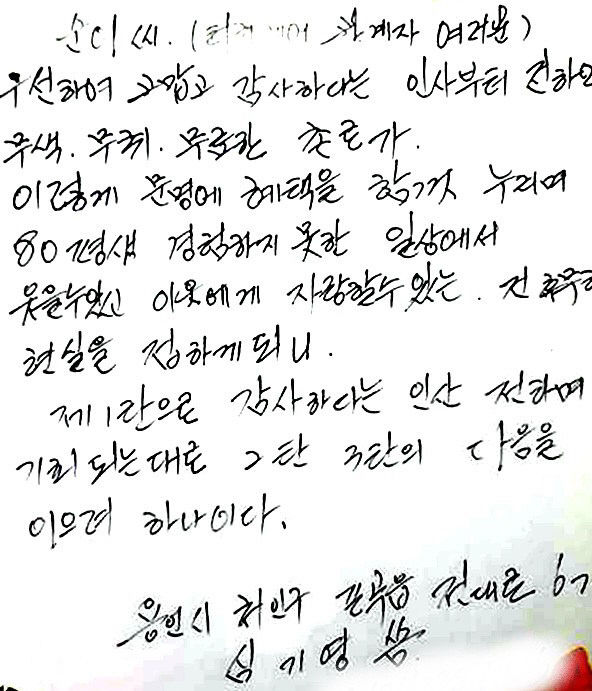 순이 씨. ( 관계자 여러분)
우선하여 고맙고 감사하다는 인사부터 전하며
무색. 무취. 무료한 촌로가.
이렇게 문명에 혜택을 힘껏 누리며
80평생 경험하지 못한 일상에서
웃을수있고 이웃에게 자랑할수있는. 전후무
현실을 접하게 되니.
제1탄으로 감사하다는 인산 전하며
기회 되는대로 2탄 3탄의 다음을
이으려 하나이다.
용인시 처인구 포곡읍 전대로 67
심기영